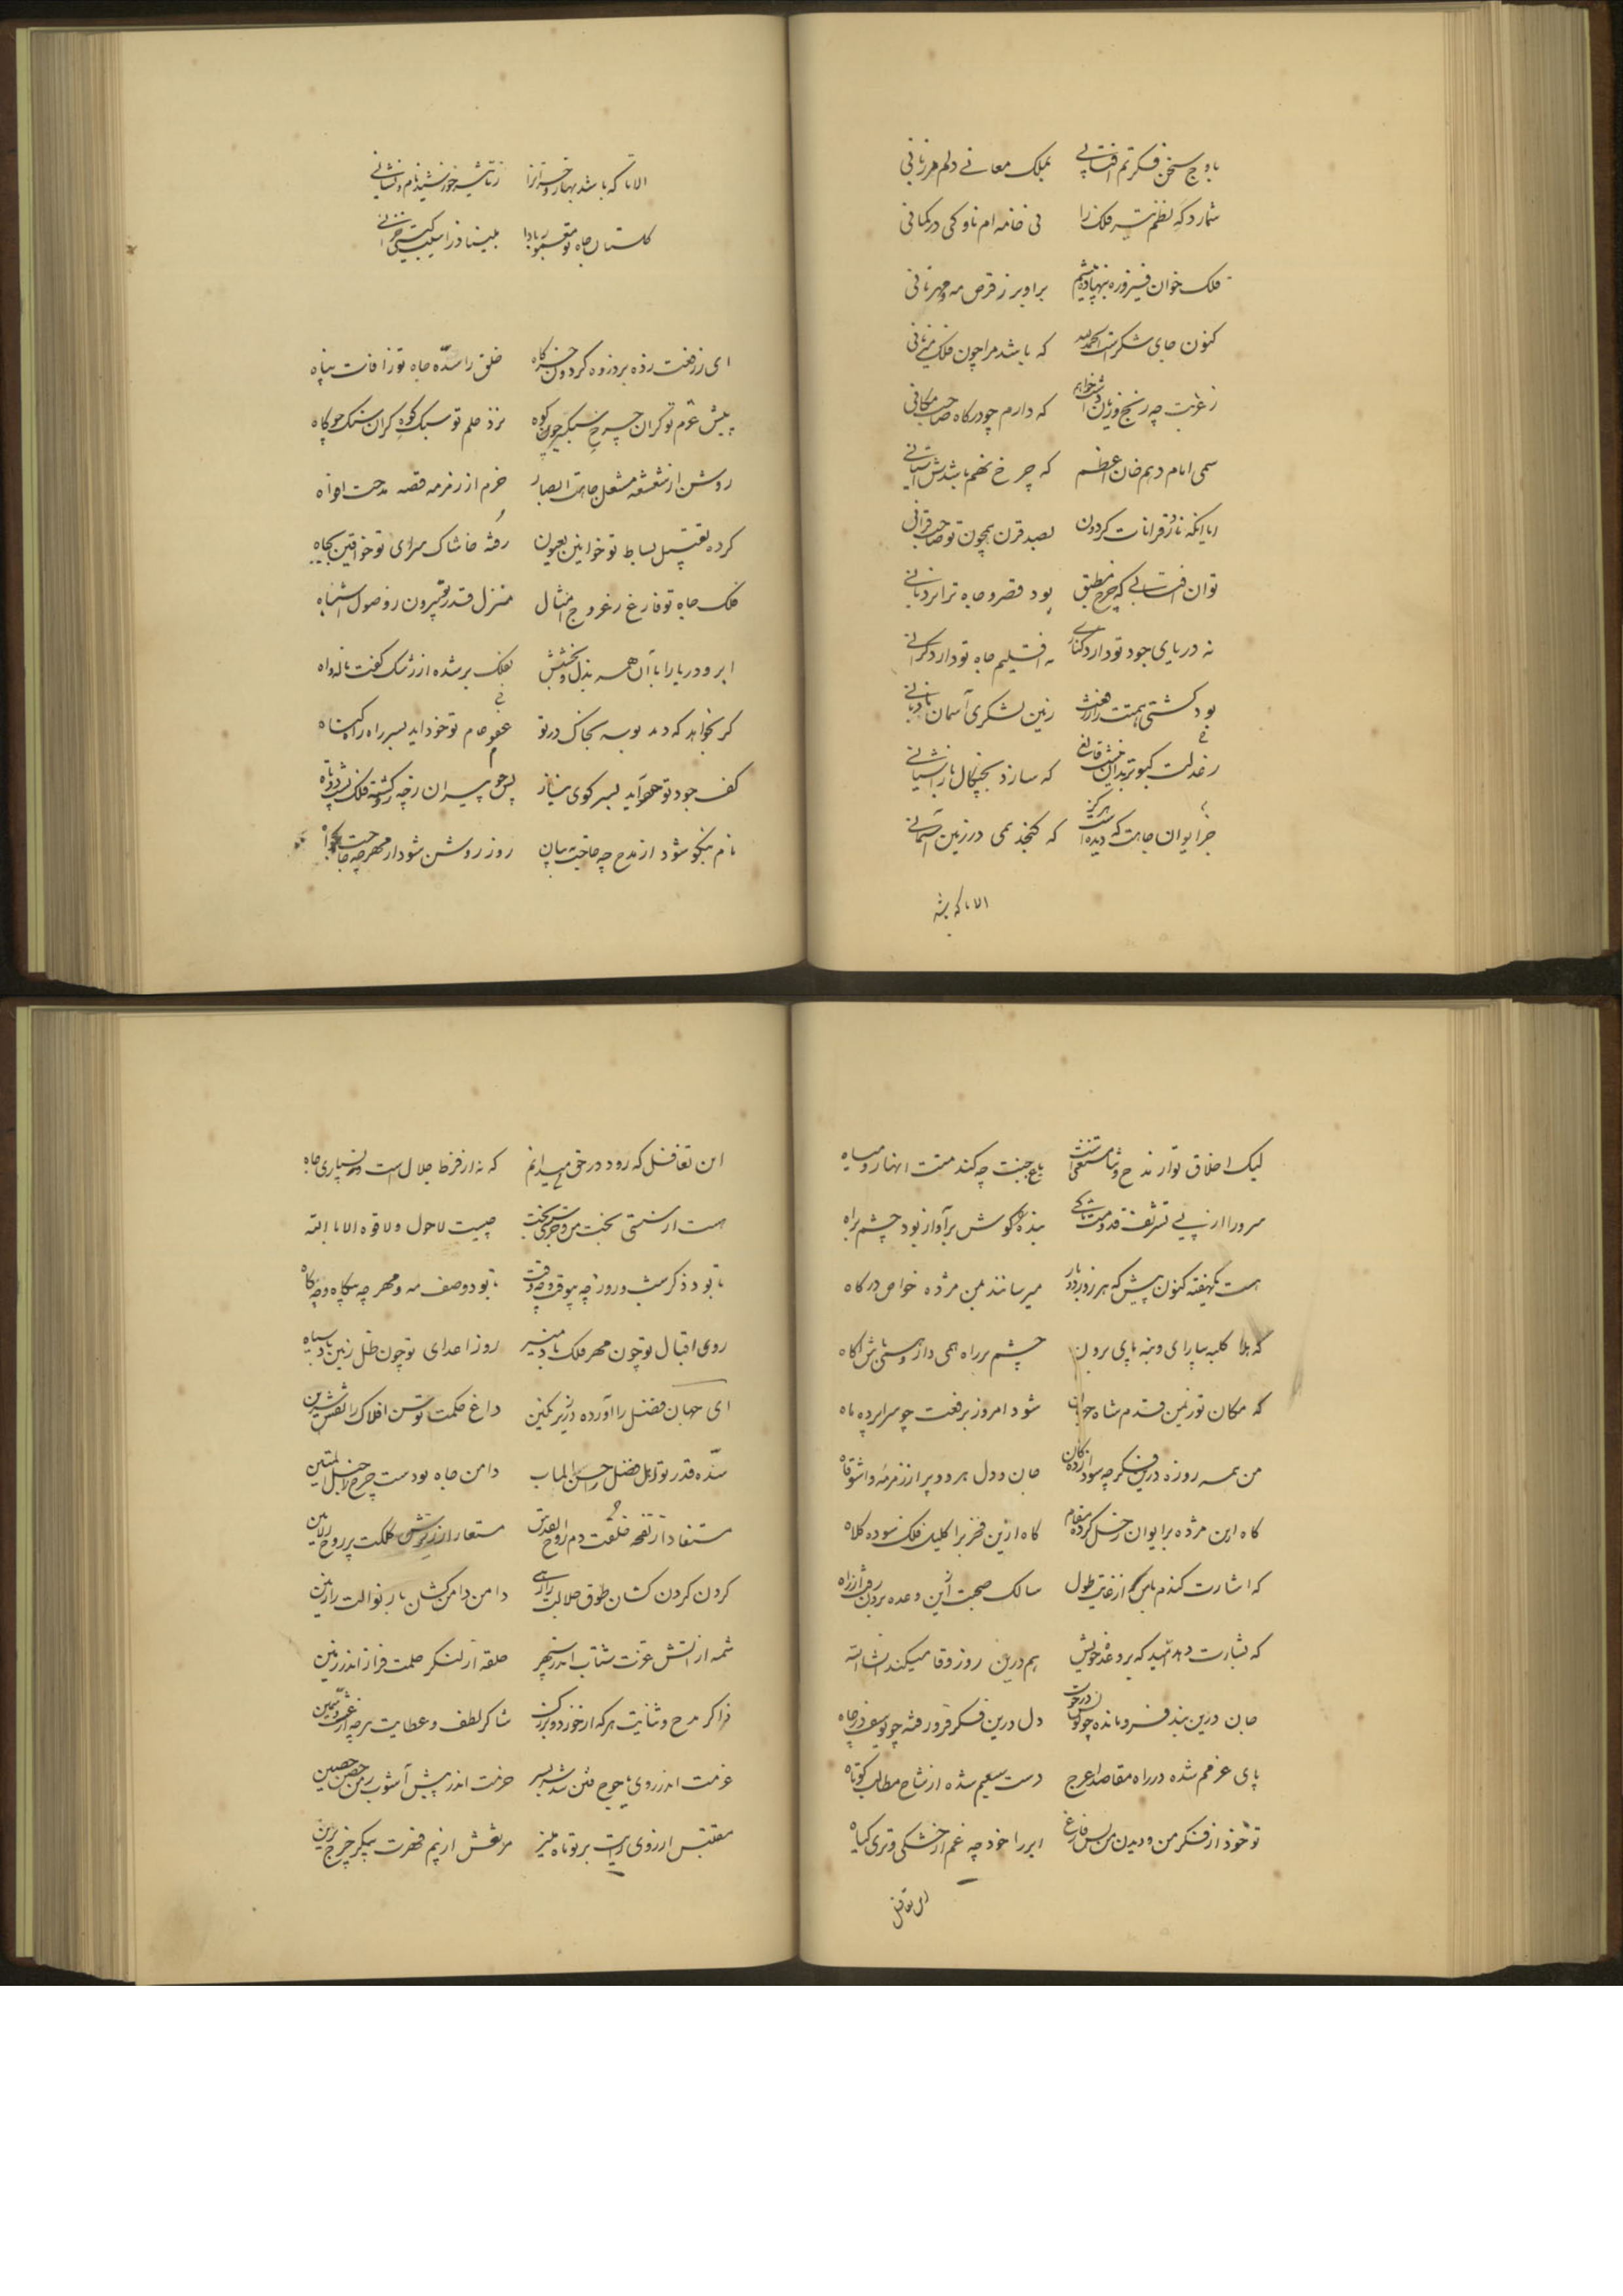 باوج سخن فکرتم آفتابی بملک معانی دلم مرزبانی
شمارد گه نظم تیر فلک را نی خامه ام ناوکی در کمانی
فلک خوان فیروزه بنهاد پیشم بر او بر ز قرص مه و مهر نانی
کنون جای شکر است الحمد لله که باشد مرا چون فلک میزبانی
ز غربت چه رنج و زیان که دارم چو درگاه صاحب مکانی
سمی امام دهم خان اعظم که چرخ نهم باشدش آستانی
ایا آنکه نارد قرانات گردون بصد قرن همچون تو صاحبقرانی
تو آن آفتابی که چرخ مطبق بود قصر و جاه ترا نردبانی
نه دریای جود تو دارد کناری نه اقلیم جاه تو دارد کرانی
بود کشتی همتت را ز رفعت زمین لنگری آسمان بادبانی
ز عدلت کبوتر بدان که سازد بچنگال باز آشیانی
جز ایوان جاهت که دیده است هرگز که گنجد همی در زمین آسمانی
الا تا که باشد
الا تا که باشد بهار و خزان را ز تاثیر خورشید نام و نشانی
گلستان جاه تو معمور بادا مبیناد از آسیب گیتی خزانی
ای ز رفعت زده بر ذروه گردون خرگاه خلق را سده جاه تو ز آفات پناه
پیش عزم تو گران چرخ سبکسیر چون کوه نزد حلم تو سبک کوه گران سنگ چو کاه
روشن از شعشعه مشعل جاهت ابصار خرم از زمزمه قصه مدحت افواه
کرده تقبیل بساط تو خوانین بعیون رفته خاشاک سرای تو خواقین بجباه
فلک جاه تو فارغ ز عروج امثال منزل قدر تو بیرون ز وصول اشباه
ابر و دریا را با آن همه بذل و بخشش بفلک بر شده از رشک کفت ناله و آه
گر بخواهد که دهد بوسه بخاک در تو عفو عام تو خود آید بسر راه گناه
کف جود تو چو آید بسر کوی نیاز
نام نیکو شود از مدح چه حاجت ببیان روز روشن شود از مهر چه حاجت بگواه
لیک اخلاق تو از مدح و ثنا مستغنی است باغ جنت چه کند منت انهار و میاه
سرورا از پی تشریف قدومت بنده گوش بر آواز بود چشم براه
هست یکهفته کنون بیش که هر روز دو بار میرسانند بمن مژده خواص درگاه
که هلا کلبه بیارای و بنه پای برون چشم بر راه همی دار
که مکان تو ز یمن قدم شاه جهان شود امروز برفعت چو سراپرده ماه
من همه روزه درین فکر چه سودازدگان جان و دل هر دو پر از زمزمه واشوقاه
گاه ازین مژده بر ایوان زحل کرده مقام گاه ازین فخر بر اکلیل فلک سوده کلاه
که اشارت کندم یاس که از غایت طول سالک صحبت ازین وعده برون رفت ز راه
که بشارت دهد امید که بر وعده خویش هم درین روز وفا میکند انشاالله
جان درین بند فرو مانده چو یونس در حوت دل درین فکر فرو رفته چو یوسف در چاه
پای عزمم شده در راه مقاصد اعرج دست سعیم شده از شاخ مطالب کوتاه
تو خود از فکر من و دیدن من بس فارغ ابر را خود چه غم از خشکی و تری گیاه
این تغافل
این تغافل که رود در حق من میدانم که نه از فرط جلال است و نه بسیاری جاه
هست از سستی بخت من و جز سستی بخت چیست لاحول ولا قوه الا بالله
تا بود ذکر شب و روز چه بیوقت و چه وقت تا بود وصف مه و مهر چه بیگاه و چه گاه
روی اقبال تو چون مهر فلک باد منیر روز اعدای تو چون ظل زمین باد سیاه
ای جهان فضل را آورده در زیر نگین داغ حکمت توسن افلاک را نقش سرین
سده قدر تو اهل فضل را حسن المآب دامن جاه تو دست چرخ را حبل المتین
مستفاد از نفحه خلقت دم روح القدس مستعار از ریزش کلکت پر روح الامین
گردن گردن کشان طوق جلالت را رهی دامن دامن کشان بار نوالت را رهین
شمه از آتش عزمت شتاب اندر سپهر حلقه از لنگر حلمت قرار اندر زمین
ذاکر مدح و ثنایت هر که از خورد و بزرگ شاکر لطف و عطایت هر چه از غث و سمین
عزمت اندر روی یاجوج فتن سد سدید حزمت اندر پیش آشوب زمن حصن حصین
مقتبس از روی رایت پرتو ماه منیر مرتعش از بیم قهرت پیکر چرخ برین